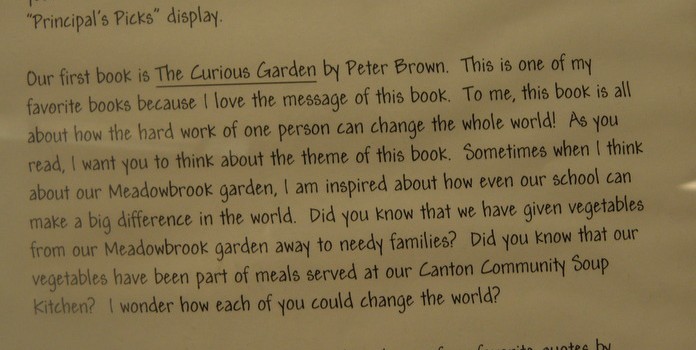 "Principal's Picks" display.
Our first book is The Curious Garden by Peter Brown. This is one of my
favorite books because I love the message of this book. To me, this book is all
about how the hard work of one person can change the whole world! As you
read, I want you to think about the theme of this book. Sometimes when I think
about our Meadowbrook garden, I am inspired about how even our school can
make a big difference in the world. Did you know that we have given vegetables
from our Meadowbrook garden away to needy families? Did you know that our
vegetables have been part of meals served at our Canton Community Soup
Kitchen? I wonder how each of you could change the world?
favorite quotes by